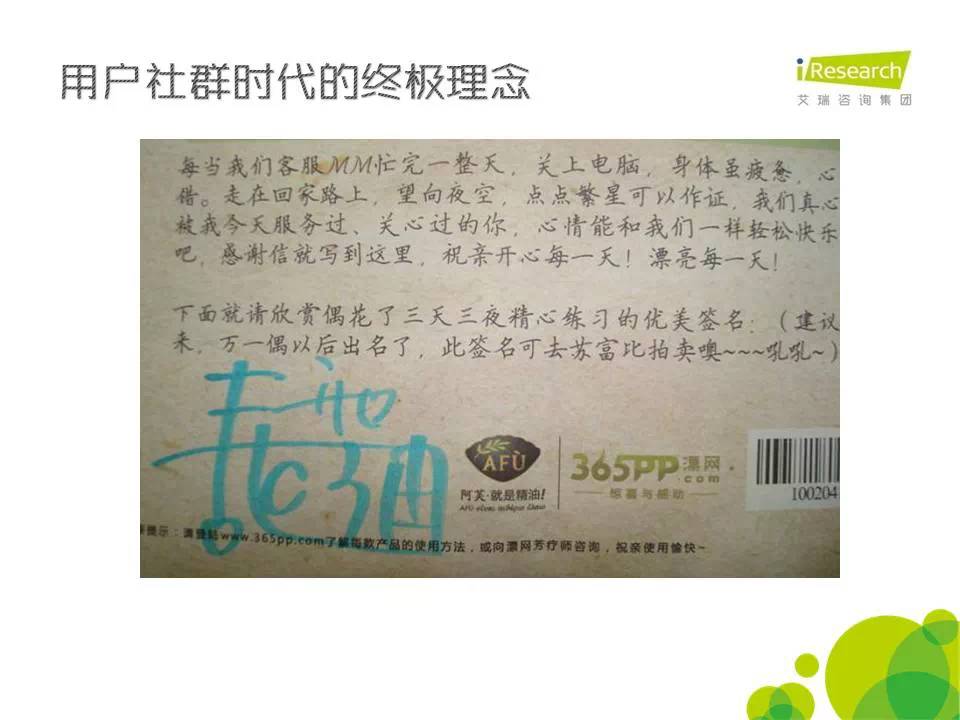 用户社群时代的终极理念
iResearch
艾瑞咨询集团
每当我们客服MM忙完一整天，关上电脑，身体虽疲惫，心
借。走在回家路上，望向夜空，点点繁星可以作证，我们真心
被我今天服务过、关心过的你，心情能和我们一样轻松快乐
吧，感谢信就写到这里，祝亲开心每一天！漂亮每一天！
下面就请欣赏偶花了三天三夜精心练习的优美签名：（建议
来，万一偶以后出名了，此签名可去苏富比拍卖噢~~~吼吼~）
AFÙ
阿芙·就是精油！
365PP漂网.com
惊喜与感动
100204
提示：请登陆www.365pp.com了解每款产品的使用方法，或向漂网芳疗师咨询，祝亲使用愉快~